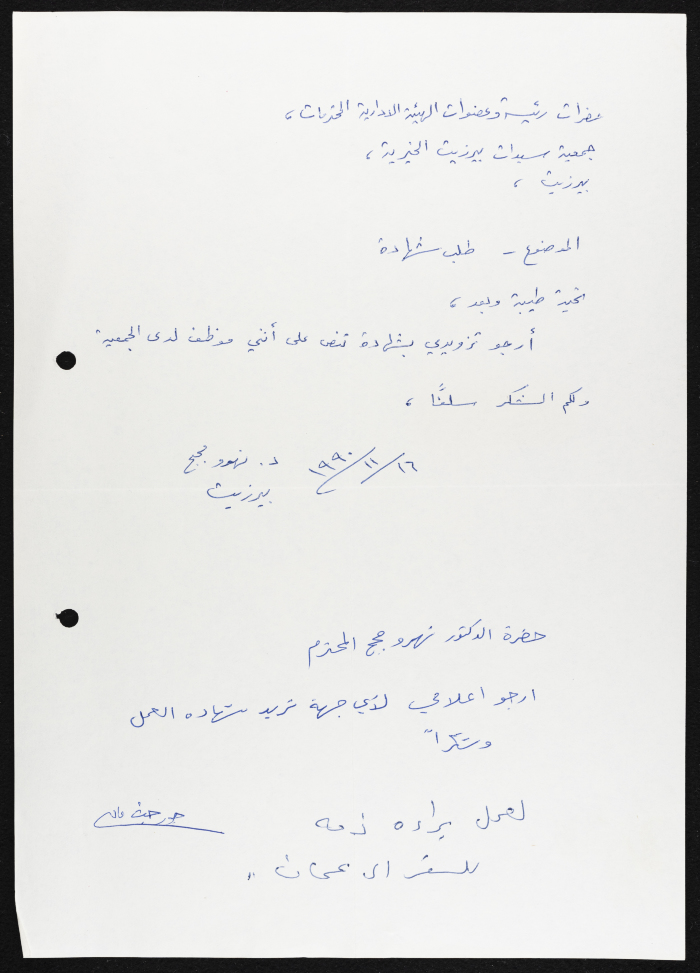 حضرات رئيسة وعضوات الهيئة الادارية المحترمات ،
جمعية سيدات بيرزيت الخيرية ،
بيرزيت ،
الموضوع - طلب شهادة
تحية طيبة وبعد ،
أرجو تزويدي بشهادة تنص على أنني موظف لدى الجمعية
ولكم الشكر سلفًا ،
١٦/١١/١٩٩٠ د. نهرو حجج
بيرزيت
حضرة الدكتور نهرو حجج المحترم
ارجو اعلامي لأي جهة تريد شهاده العمل
وشكراً
لعمل براءه ذمه
للسفر الى عمان "